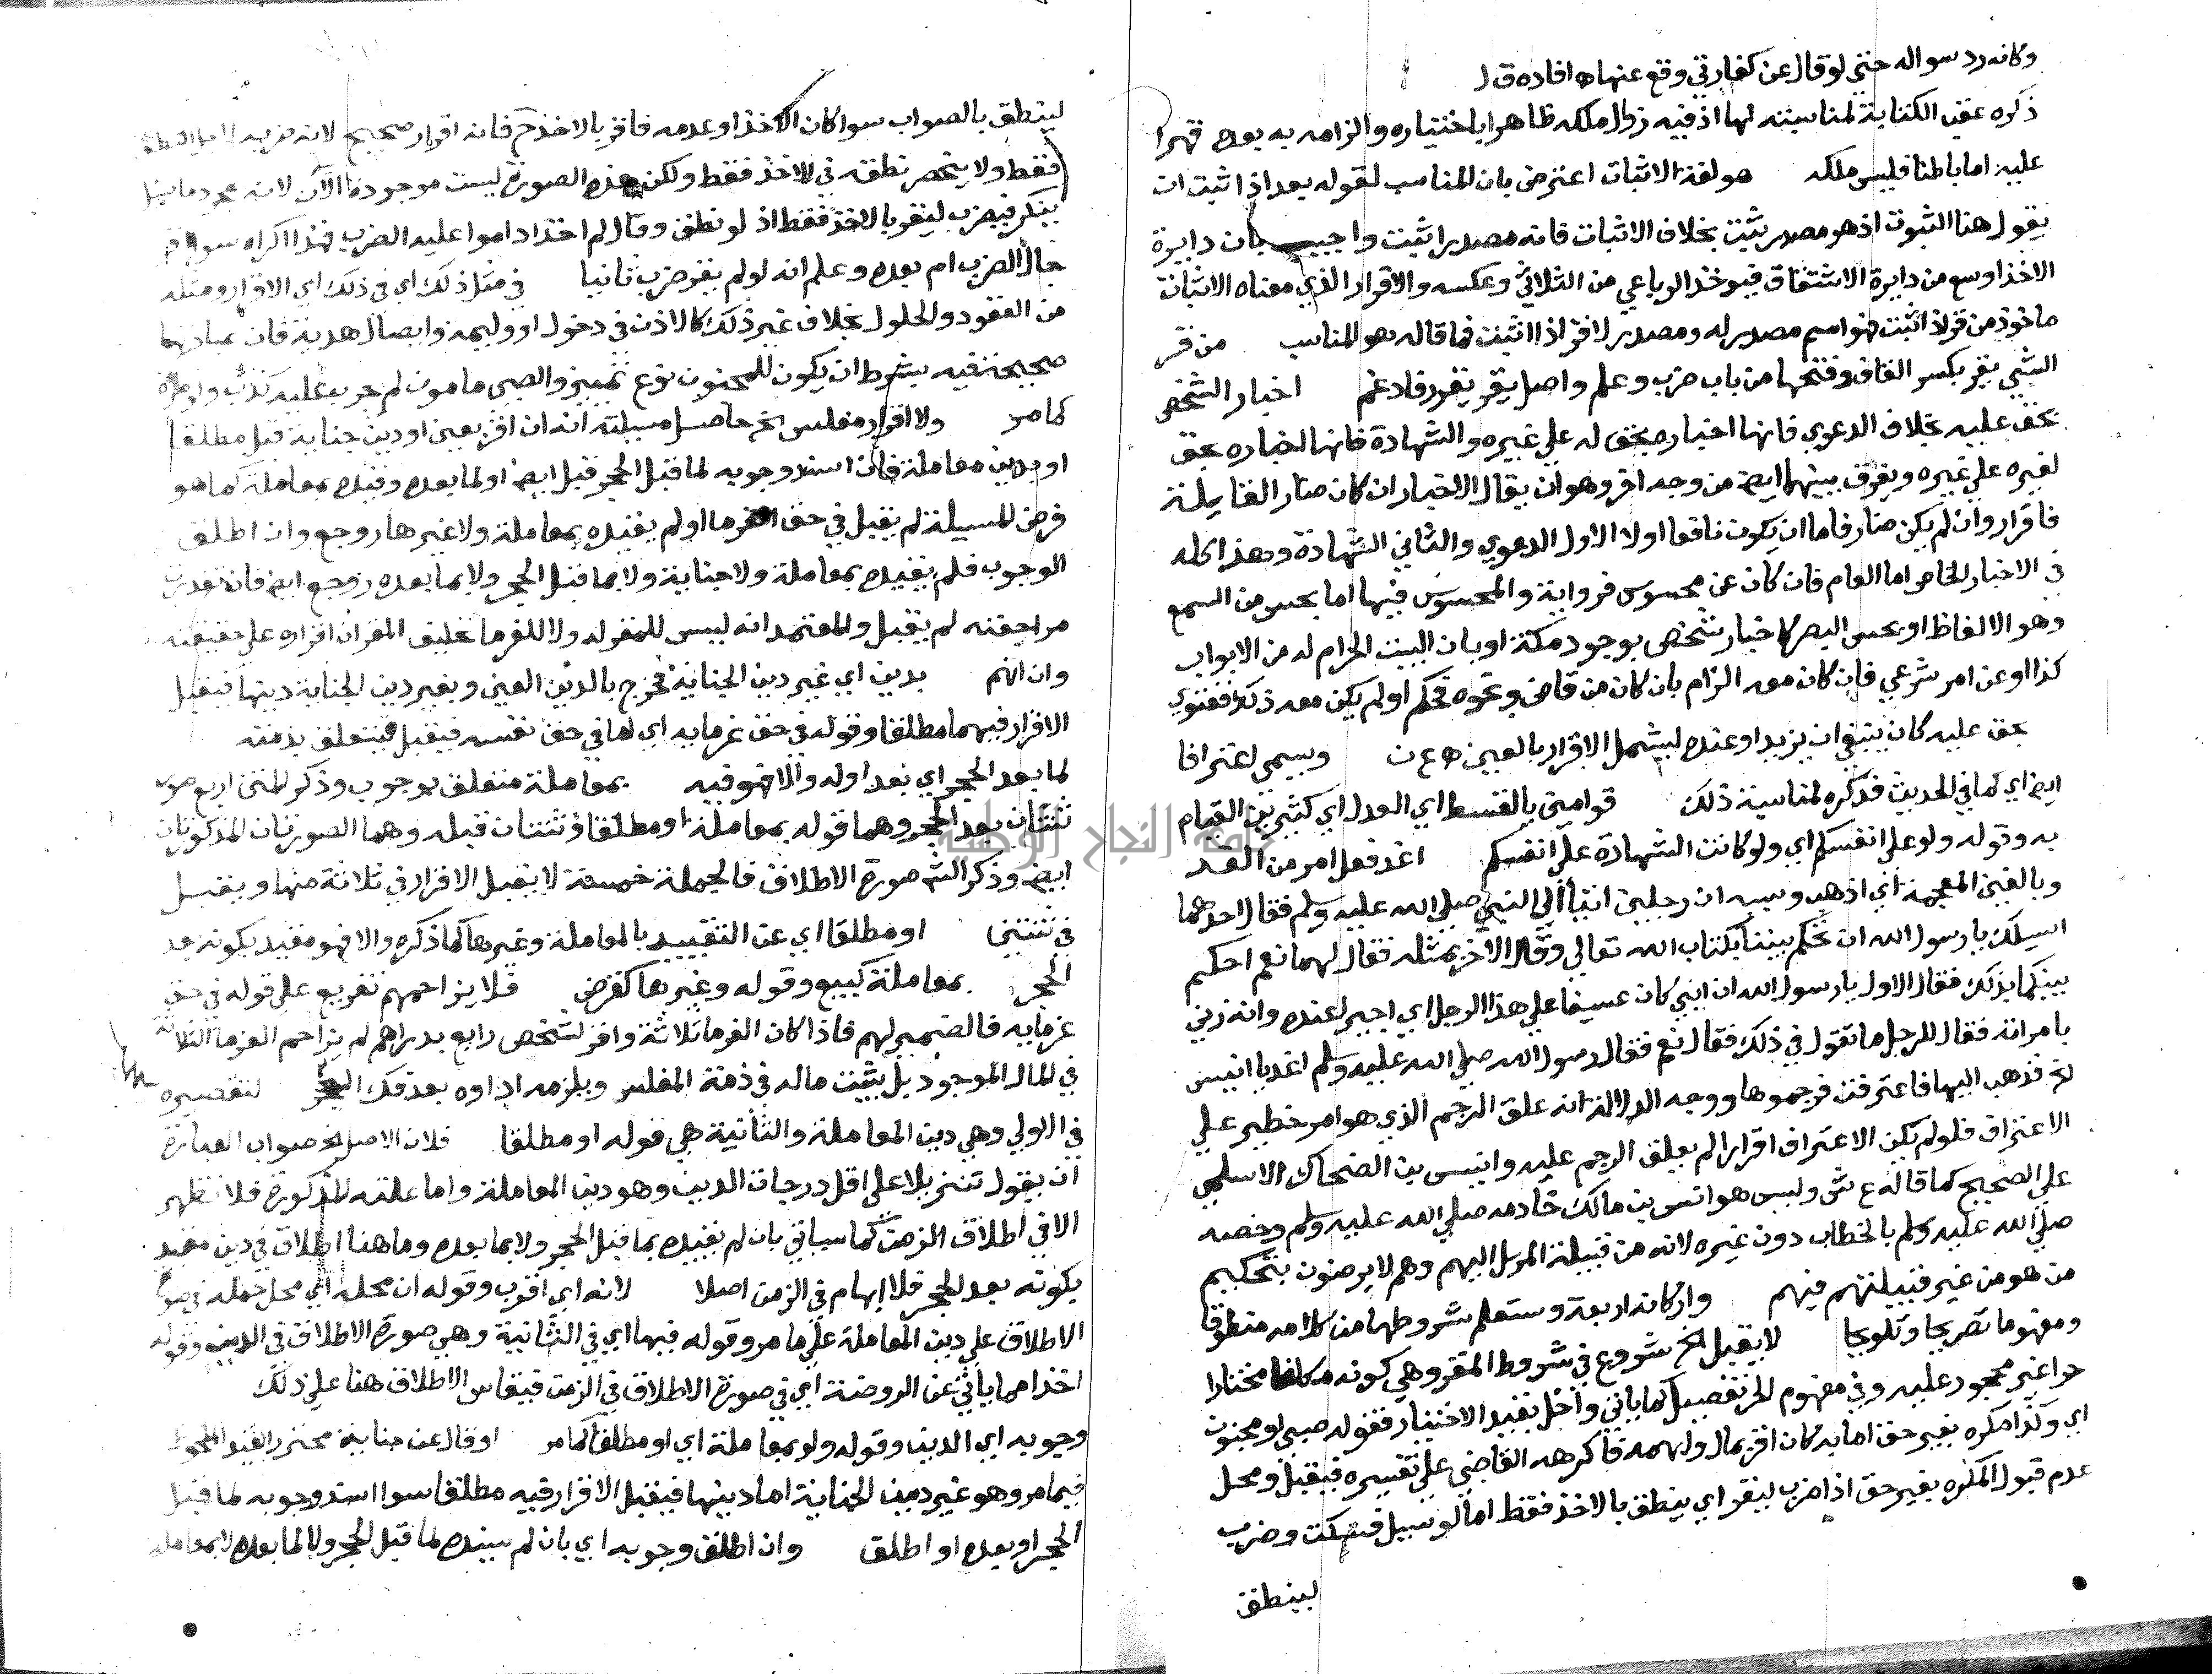 وكانه رد سواله حتي لو قال عن كفارتي وقع عنهما ه افاده ق ل
ذكره عقب الكتابة لمناسبته لها اذ فيه زوال ملكه ظاهرا باختياره والزامه به بعده قهرا
عليه اما باطنا فليس ملكه هو لغة الاثبات اعترض بان المناسب لقوله بعد اذا ثبت ان
يقول هنا الثبوت اذ هو مصدر ثبت بخلاف الاثبات فانه مصدر اثبت واجيب بان دايرة
الاخذ اوسع من دايرة الاشتقاق فيوخذ الرباعي من الثلاثي وعكسه والاقرار الذي معناه الاثبات
ماخوذ من قر اذا ثبت فهو اسم مصدر له ومصدر لاقر اذا اثبت فما قاله هو المناسب من قر
الشي يقر بكسر القاف وفتحها من باب ضرب وعلم واصل يقر يقرر فادغم اخبار الشخص
بحق عليه بخلاف الدعوي فانها اخباره بحق له علي غيره والشهادة فانها اخباره بحق
لغيره علي غيره ويفرق بينهما ايضا من وجه اخر وهو ان يقال الاخبار ان كان ضارا لقايله
فاقرار وان لم يكن ضارا فاما ان يكون نافعا اولا الاول الدعوي والثاني الشهادة وهذا كله
في الاخبار الخاص اما العام فان كان عن محسوس فرواية والمحسوس فيها اما بحس من السمع
وهو الالفاظ او بحس البصر كاخبار شخص بوجود مكة او بان البيت الحرام له من الابواب
كذا او عن امر شرعي فان كان معه الزام بان كان من قاض ونحوه فحكم او لم يكن معه ذلك ففتوي
بحق عليه كان ينبغي ان يزيد او عنده ليشمل الاقرار بالعين ه ع ن ويسمي اعترافا
ايضا اي كما في الحديث فذكره لمناسبة ذلك قوامين بالقسط اي العدل اي كثيرين القيام
به وقوله ولو علي انفسكم اي ولو كانت الشهادة علي انفسكم اغد فعل امر من الغد
وبالغين المعجمة اي اذهب وسببه ان رجلين اتيا الي النبي صلي الله عليه وسلم فقال احدهما
اسيلك يا رسول الله ان تحكم بيننا بكتاب الله تعالي وقال الاخر بمثله فقال لهما نعم احكم
بينكما بذلك فقال الاول يا رسول الله ان ابني كان عسيفا علي هذا الرجل اي اجيرا عنده وانه زني
بامراته فقال للرجل ما تقول في ذلك فقال نعم فقال رسول الله صلي الله عليه وسلم اغد يا انيس
لخ فذهب اليها فاعترفت فرجموها ووجه الدلالة انه علق الرجم الذي هو امر خطير علي
الاعتراف فلو لم يكن الاعتراف اقرارا لم يعلق الرجم عليه وانيس بن الضحاك الاسلمي
علي الصحيح كما قاله ع ش وليس هو انس بن مالك خادمه صلي الله عليه وسلم وخصه
صلي الله عليه وسلم بالخطاب دون غيره لانه من قبيلة المرسل اليهم وهم لا يرضون بتحكيم
من هو من غير قبيلتهم فيهم واركانه اربعة وستعلم شروطها من كلامه منطوقا
ومفهوما تصريحا وتلويحا لا يقبل الخ شروع في شروط المقر وهي كونه مكلفا مختارا
حرا غير محجور عليه وفي مفهوم الحر تفصيل كما ياتي واخل بقيد الاختيار فقوله صبي او مجنون
اي وكذا مكره بغير حق اما به كان اقر بمال وابهمه فاكرهه القاضي علي تفسيره فيقبل ومحل
عدم قبول المكره بغير حق اذا ضرب ليقر اي ينطق بالاخذ فقط اما لو سيل فسكت وضرب
لينطق
لينطق بالصواب سوا كان الاخذ او عدمه فاقر بالاخذ ح فانه اقرار صحيح لانه ضرب لاجل النطق
فقط ولا ينحصر نطقه في الاخذ فقط ولكن هذه الصورة ليست موجودة الآن لانه بمجرد ما
ينكر فيضرب ليقر بالاخذ فقط اذ لو نطق وقال لم اخذ داموا عليه الضرب فهذا اكراه سوا اقر
حال الضرب ام بعده وعلم انه لو لم يقر ضرب ثانيا في مثل ذلك اي في ذلك اي الاقرار ومثله
من العقود والحلول بخلاف غير ذلك كالاذن في دخول او وليمة وايصال هدية فان عبارتهما
صحيحة فيه بشرط ان يكون للمجنون نوع تمييز والصبي مامون لم يجرب عليه كذب ولا مرة
كما مر ولا اقرار مفلس الخ حاصل مسيلته انه ان اقر بعين او دين جناية قبل مطلقا
او بدين معاملة فان اسند وجوبه لما قبل الحجر قبل ايضا او لما بعده وقيده بمعاملة كما هو
فرض المسيلة لم يقبل في حق الغرما او لم يقيده بمعاملة ولا غيرها روجع وان اطلق
الوجوب فلم يقيده بمعاملة ولا جناية ولا بما قبل الحجر ولا بما بعده روجع ايضا فان تعذرت
مراجعته لم يقبل والمعتمد انه ليس للمقر له ولا للغرما تحليف المقر ان اقراره علي حقيقته
وان اتهم بدين اي غير دين الجناية فخرج بالدين العين وبغير دين الجناية دينها فيقبل
الاقرار فيهما مطلقا وقوله في حق غرمايه اي اما في حق نفسه فيقبل فيتعلق بذمته
لما بعد الحجر اي بعد اوله والا فهو فيه بمعاملة متعلق بوجوب وذكر المتن اربع صور
ثنتان بعد الحجر وهما قوله بمعاملة او مطلقا وثنتان قبله وهما الصورتان المذكورتان
ايضا وذكر الش صورة الاطلاق فالجملة خمسة لا يقبل الاقرار في ثلاثة منها ويقبل
في ثنتين او مطلقا اي عن التقييد بالمعاملة وغيرها كما ذكره والا فهو مقيد بكونه بعد
الحجر بمعاملة كبيع وقوله وغيرها كقرض فلا يزاحمهم تفريع علي قوله في حق
غرمايه فالضمير لهم فاذا كان الغرما ثلاثة واقر لشخص رابع بدراهم لم يزاحم الغرما الثلاثة
في المال الموجود بل يثبت ماله في ذمة المفلس ويلزمه اداوه بعد فك الحجر لتقصيره
في الاولي وهي دين المعاملة والثانية هي قوله او مطلقا فلان الاصل الخ صواب العبارة
ان يقول تنزيلا علي اقل درجات الدين وهو دين المعاملة واما علته المذكورة فلا تظهر
الا في اطلاق الزمن كما سياتي بان لم يقيده بما قبل الحجر ولا بما بعده وما هنا اطلاق في دين مقيد
بكونه بعد الحجر فلا ابهام في الزمن اصلا لانه اي اقرب وقوله ان محله اي محل حمله في صورة
الاطلاق علي دين المعاملة علي ما مر وقوله فيها اي في الثانية وهي صورة الاطلاق في الدين وقوله
اخذا مما ياتي عن الروضة اي في صورة الاطلاق في الزمن فيقاس الاطلاق هنا علي ذلك
وجوبه اي الدين وقوله ولو بمعاملة اي او مطلقا كما مر او قال عن جناية محترز القيد الملحوظ
فيما مر وهو غير دين الجناية اما دينها فيقبل الاقرار فيه مطلقا سوا اسند وجوبه لما قبل
الحجر او بعده او اطلق وان اطلق وجوبه اي بان لم يسنده لما قبل الحجر ولا لما بعده لا بمعاملة
جامعة النجاح الوطنية